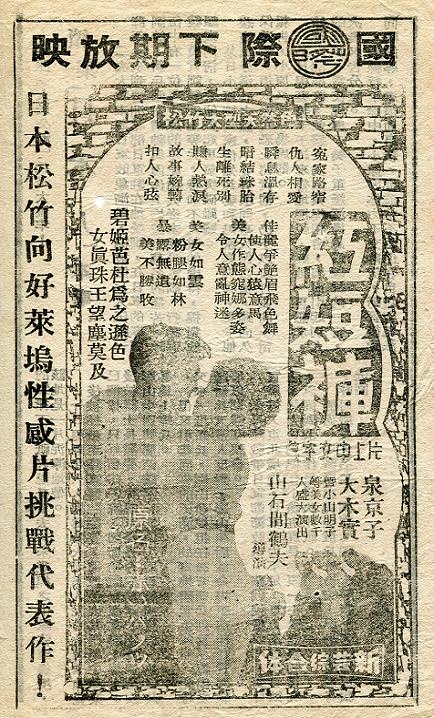 國際下期放映
松竹大型天然色
冤家路窄
仇人相愛
瞬息溫存
暗結珠胎
生離死別
賺人熱淚
故事婉轉
扣人心弦
佳麗爭艷眉飛色舞
使人心猿意馬
美女作態窕娜多姿
令人意亂神迷
美女如雲
粉腿如林
暴露無遺
美不勝收
碧姬芭杜爲之遜色
女眞珠王望塵莫及
紅短褲
泉京子
大木實
小山明子
等美女數千
人盛大演出
山石間鶴夫
導演
原名
新藝綜合体
日本松竹向好萊塢性感片挑戰代表作！